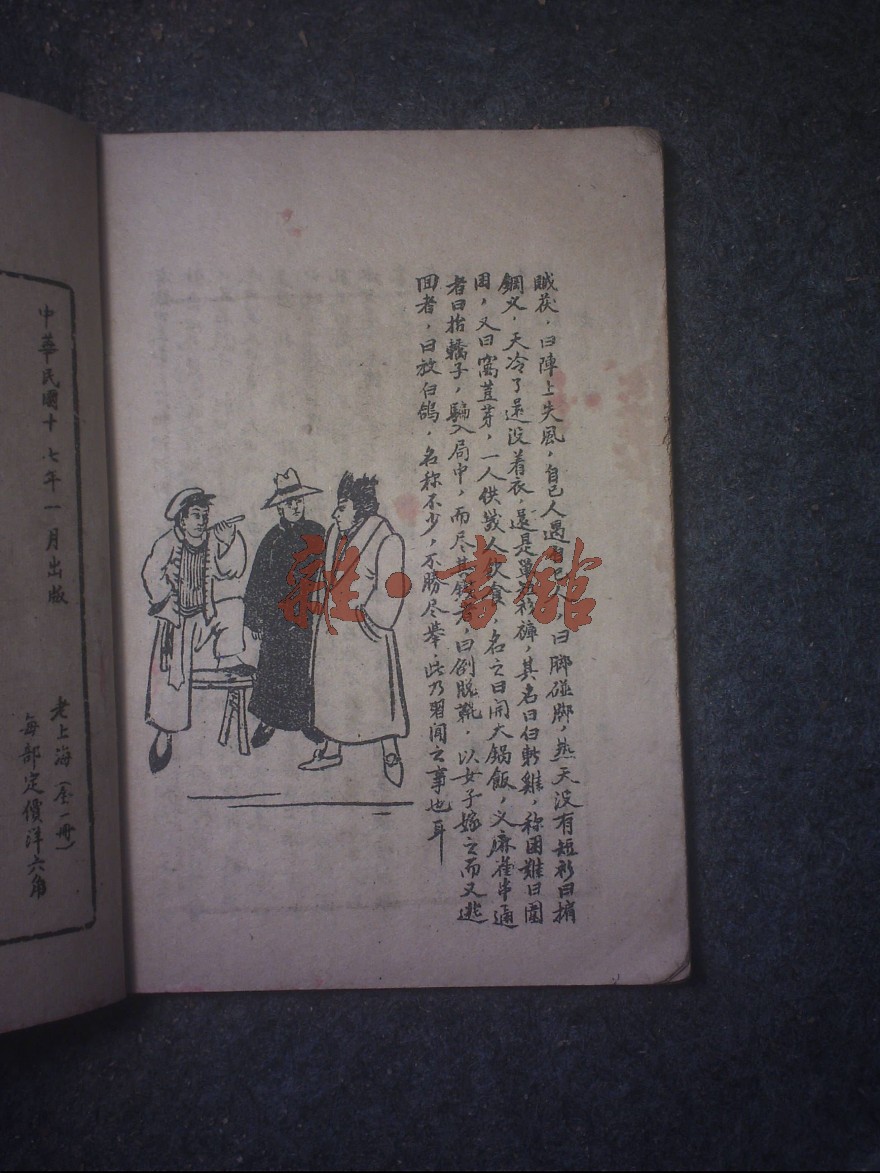 賊茯，曰陣上失風，自己人遇自己人，曰脚碰脚，热天没有短衫曰捎
鋼义，天冷了还没着衣，还是單衫裤，其名曰白斬雞，称困難曰園
困，又曰窩荳芽，一人供幾人飲食，名之曰開大锅飯，义麻雀串通
者曰抬轎子，騙入局中，而尽其錢者，曰倒脱靴，以女子嫁之而又逃
回者，曰放白鴿，名称不少，不勝尽舉，此乃習闻之事也耳
中華民國十七年一月出版
老上海（全一冊）
每部定價洋六角
雜·書館